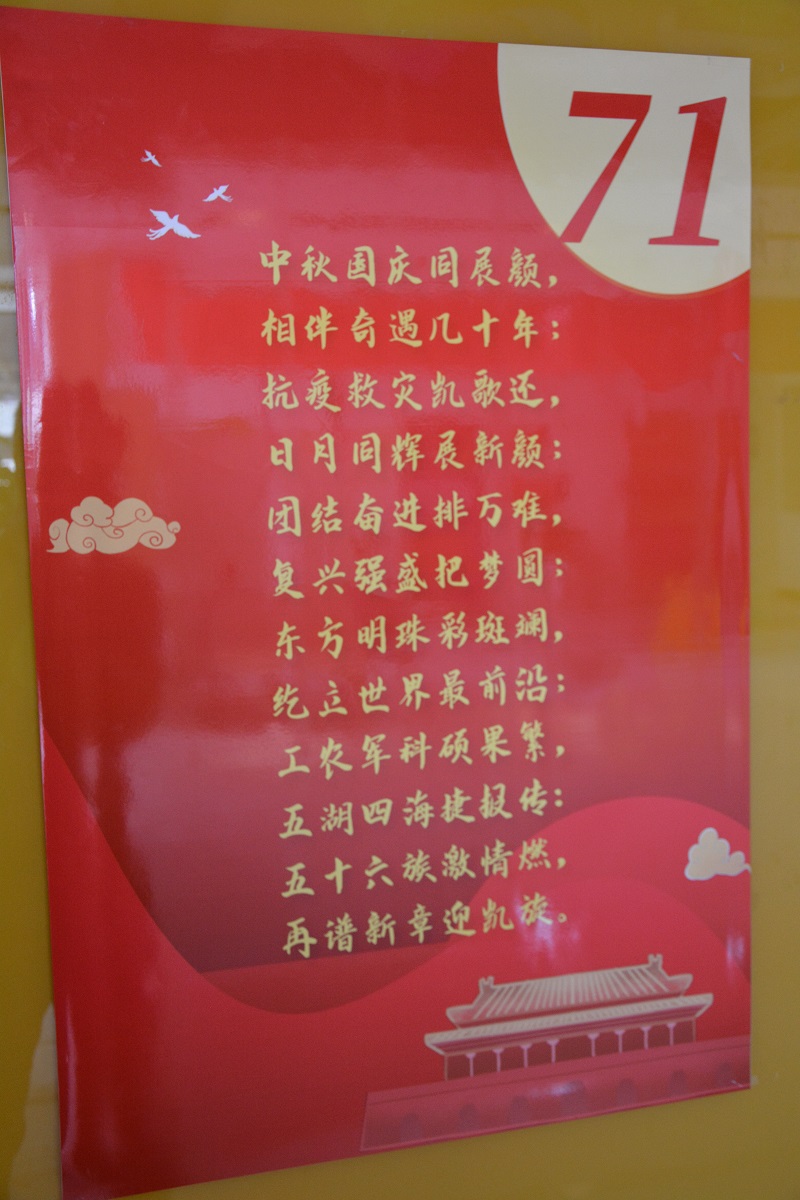 71
中秋国庆同展颜，
相伴奇遇几十年；
抗疫救灾凯歌还，
日月同辉展新颜；
团结奋进排万难，
复兴强盛把梦圆；
东方明珠彩斑斓，
纥立世界最前沿；
工农军科硕果繁，
五湖四海捷报传；
五十六族激情燃，
再谱新章迎凯旋。